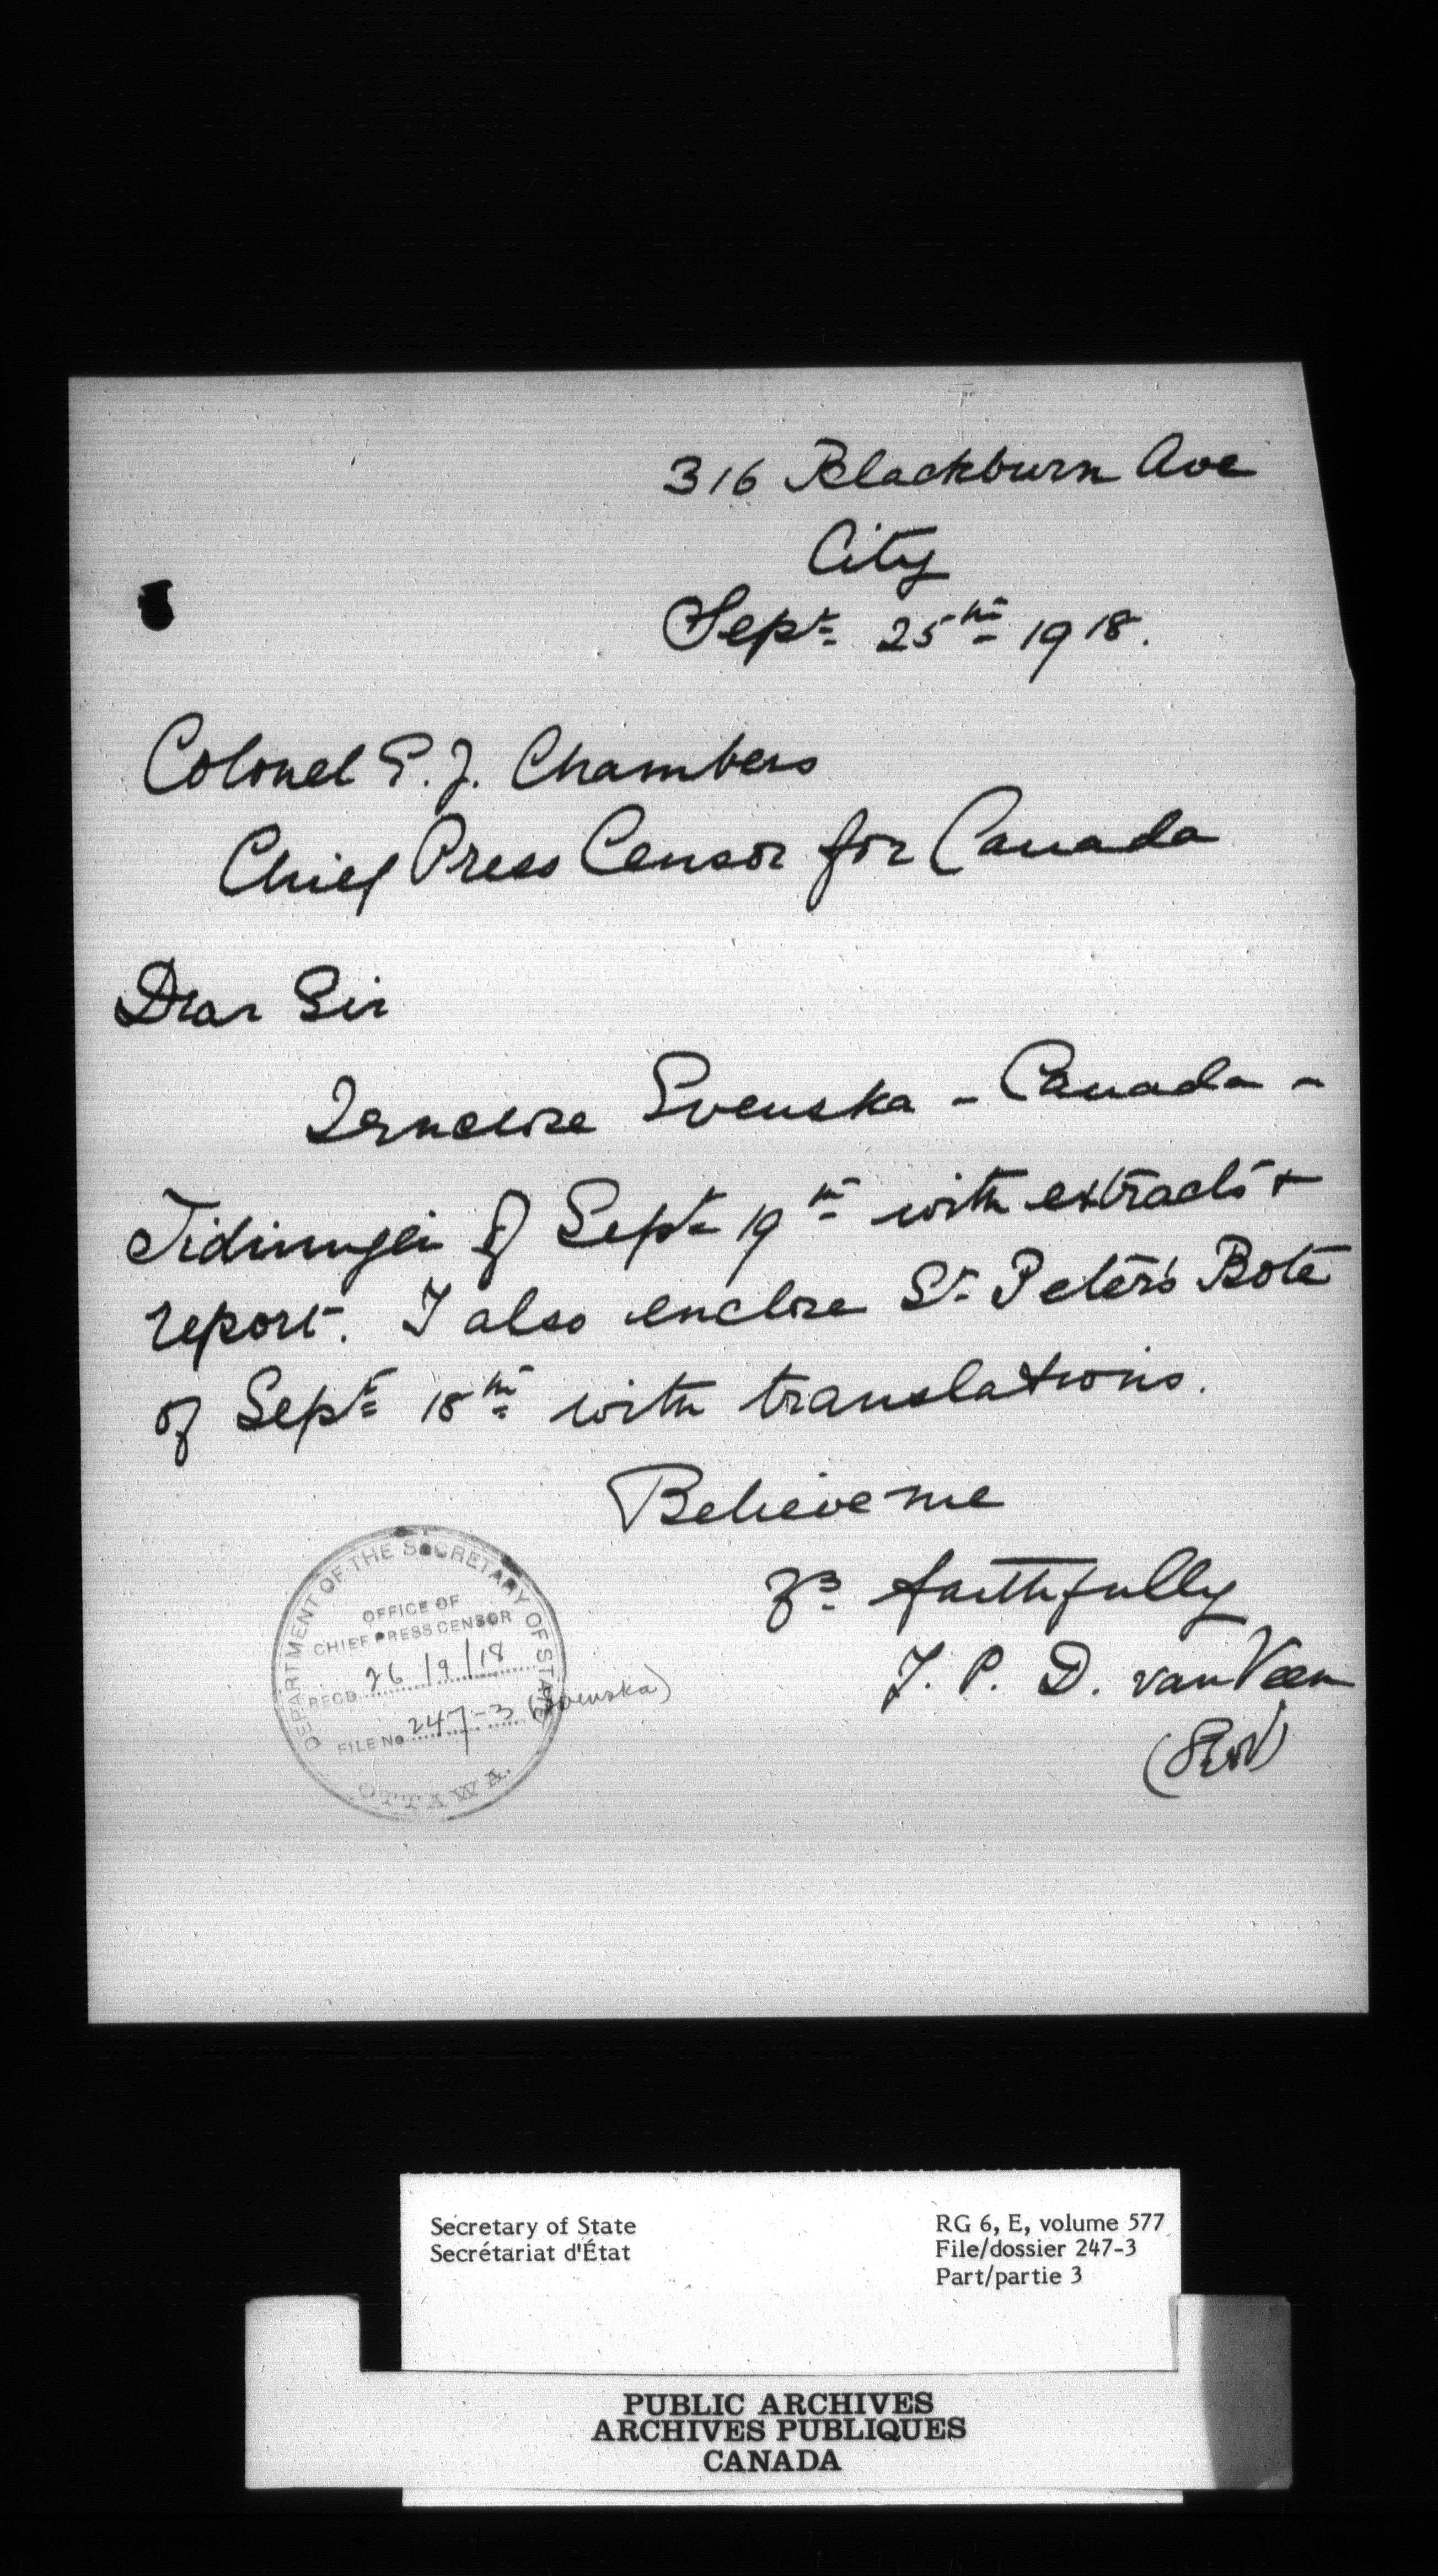 316 Blackburn Ave
City
Sept 25th 1918.
Colonel E. J. Chambers
Chief Press Censor for Canada
Dear Sir
I enclose Svenska - Canada -
Tidningen of Sept 19th with extracts &
report. I also enclose St Peter's Bote
of Sept 18th with translations.
Believe me
Yrs faithfully
J. P. D. van Veen
DEPARTMENT OF THE SECRETARY OF STATE
OFFICE OF
CHIEF PRESS CENSOR
RECD 26/9/18
FILE No 247-3 (Svenska)
OTTAWA.
Secretary of State
Secrétariat d'État
RG 6, E, volume 577
File/dossier 247-3
Part/partie 3
PUBLIC ARCHIVES
ARCHIVES PUBLIQUES
CANADA